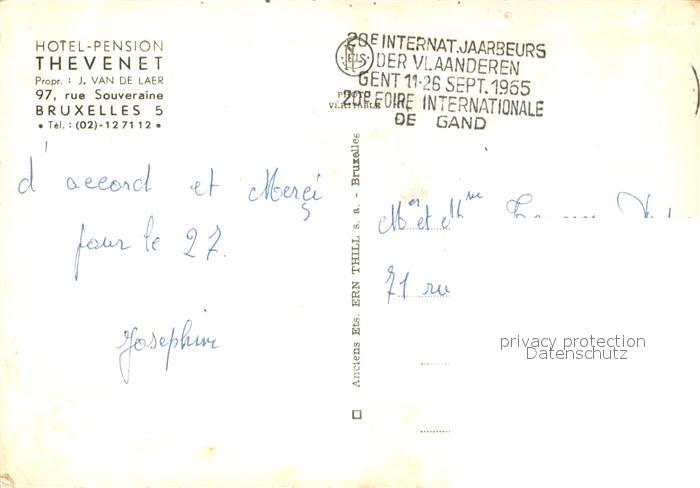 HOTEL-PENSION
THEVENET
Propr. : J. VAN DE LAER
97, rue Souveraine
BRUXELLES 5
• Tél.: (02)-12 71 12 •
20E INTERNAT. JAARBEURS
DER VLAANDEREN
GENT 11-26 SEPT. 1965
20E FOIRE INTERNATIONALE
DE GAND
PHOTO
VERITABLE
d'accord et Merçi
pour le 27.
Josephine
Anciens Ets. ERN THILL s. a. - Bruxelles
Mer et Mme
71 rue
privacy protection
Datenschutz